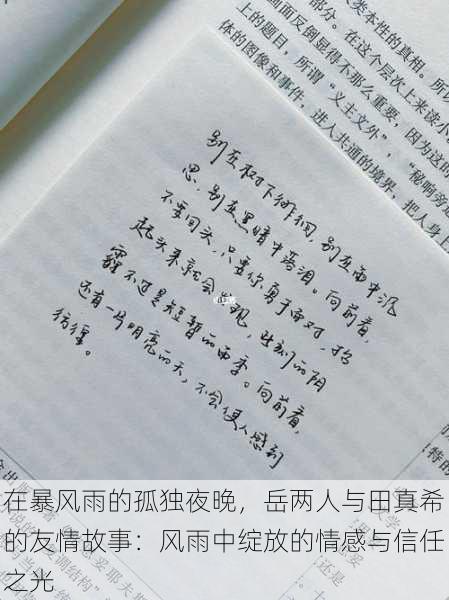 人类本性的真相。所
部分。在这个层次上来读小
画面反倒显得不那么重要，因为这
上的题目，所谓“义主文外”，“秘响旁
体的图像和事件，进入共通的境界，把人身
别在树下徘徊，别在雨中沉
思，别在黑暗中落泪。向前看，
不要回头，只要你勇于面对，抬
起头来就会发现，此刻的阴
霾不过是短暂的雨季。向前看，
还有一片明亮的天，不会使人感到
彷徨。
在暴风雨的孤独夜晚，岳两人与田真希
的友情故事：风雨中绽放的情感与信任
之光